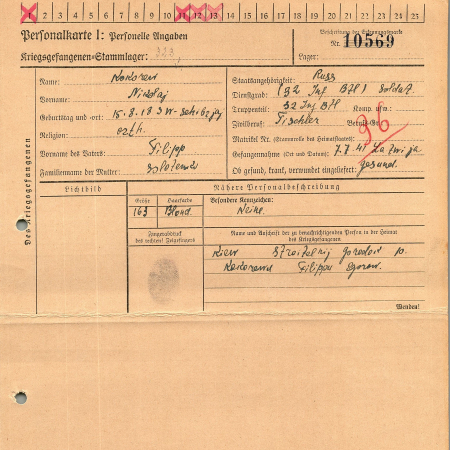 1 2 3 4 5 6 7 8 9 10 11 12 13 14 15 16 17 18 19 20 21 22 23 24 25
Personalkarte I: Personelle Angaben
Kriegsgefangenen-Stammlager: 323
Beschriftung der Erkennungsmarke
Nr. 10569
Lager:
Des Kriegsgefangenen
Name:
Vorname: Nikolaj
Geburtstag und -ort: 15.8.18
Religion: orth.
Vorname des Vaters: Filipp
Familienname der Mutter:
Staatsangehörigkeit: Russ
Dienstgrad: (32 Inf Btl) Soldat
Truppenteil: 32 Inf Btl Komp. usw.:
Zivilberuf: Tischler Berufs-Gr.:
96
Matrikel Nr. (Stammrolle des Heimatstaates):
Gefangennahme (Ort und Datum): 7.7.41
Ob gesund, krank, verwundet eingeliefert: gesund.
Lichtbild
Nähere Personalbeschreibung
Größe Haarfarbe Besondere Kennzeichen:
163 Blond. Keine.
Fingerabdruck
des rechten! Zeigefingers
Name und Anschrift der zu benachrichtigenden Person in der Heimat
des Kriegsgefangenen
Kiew
Filipp
Wenden!